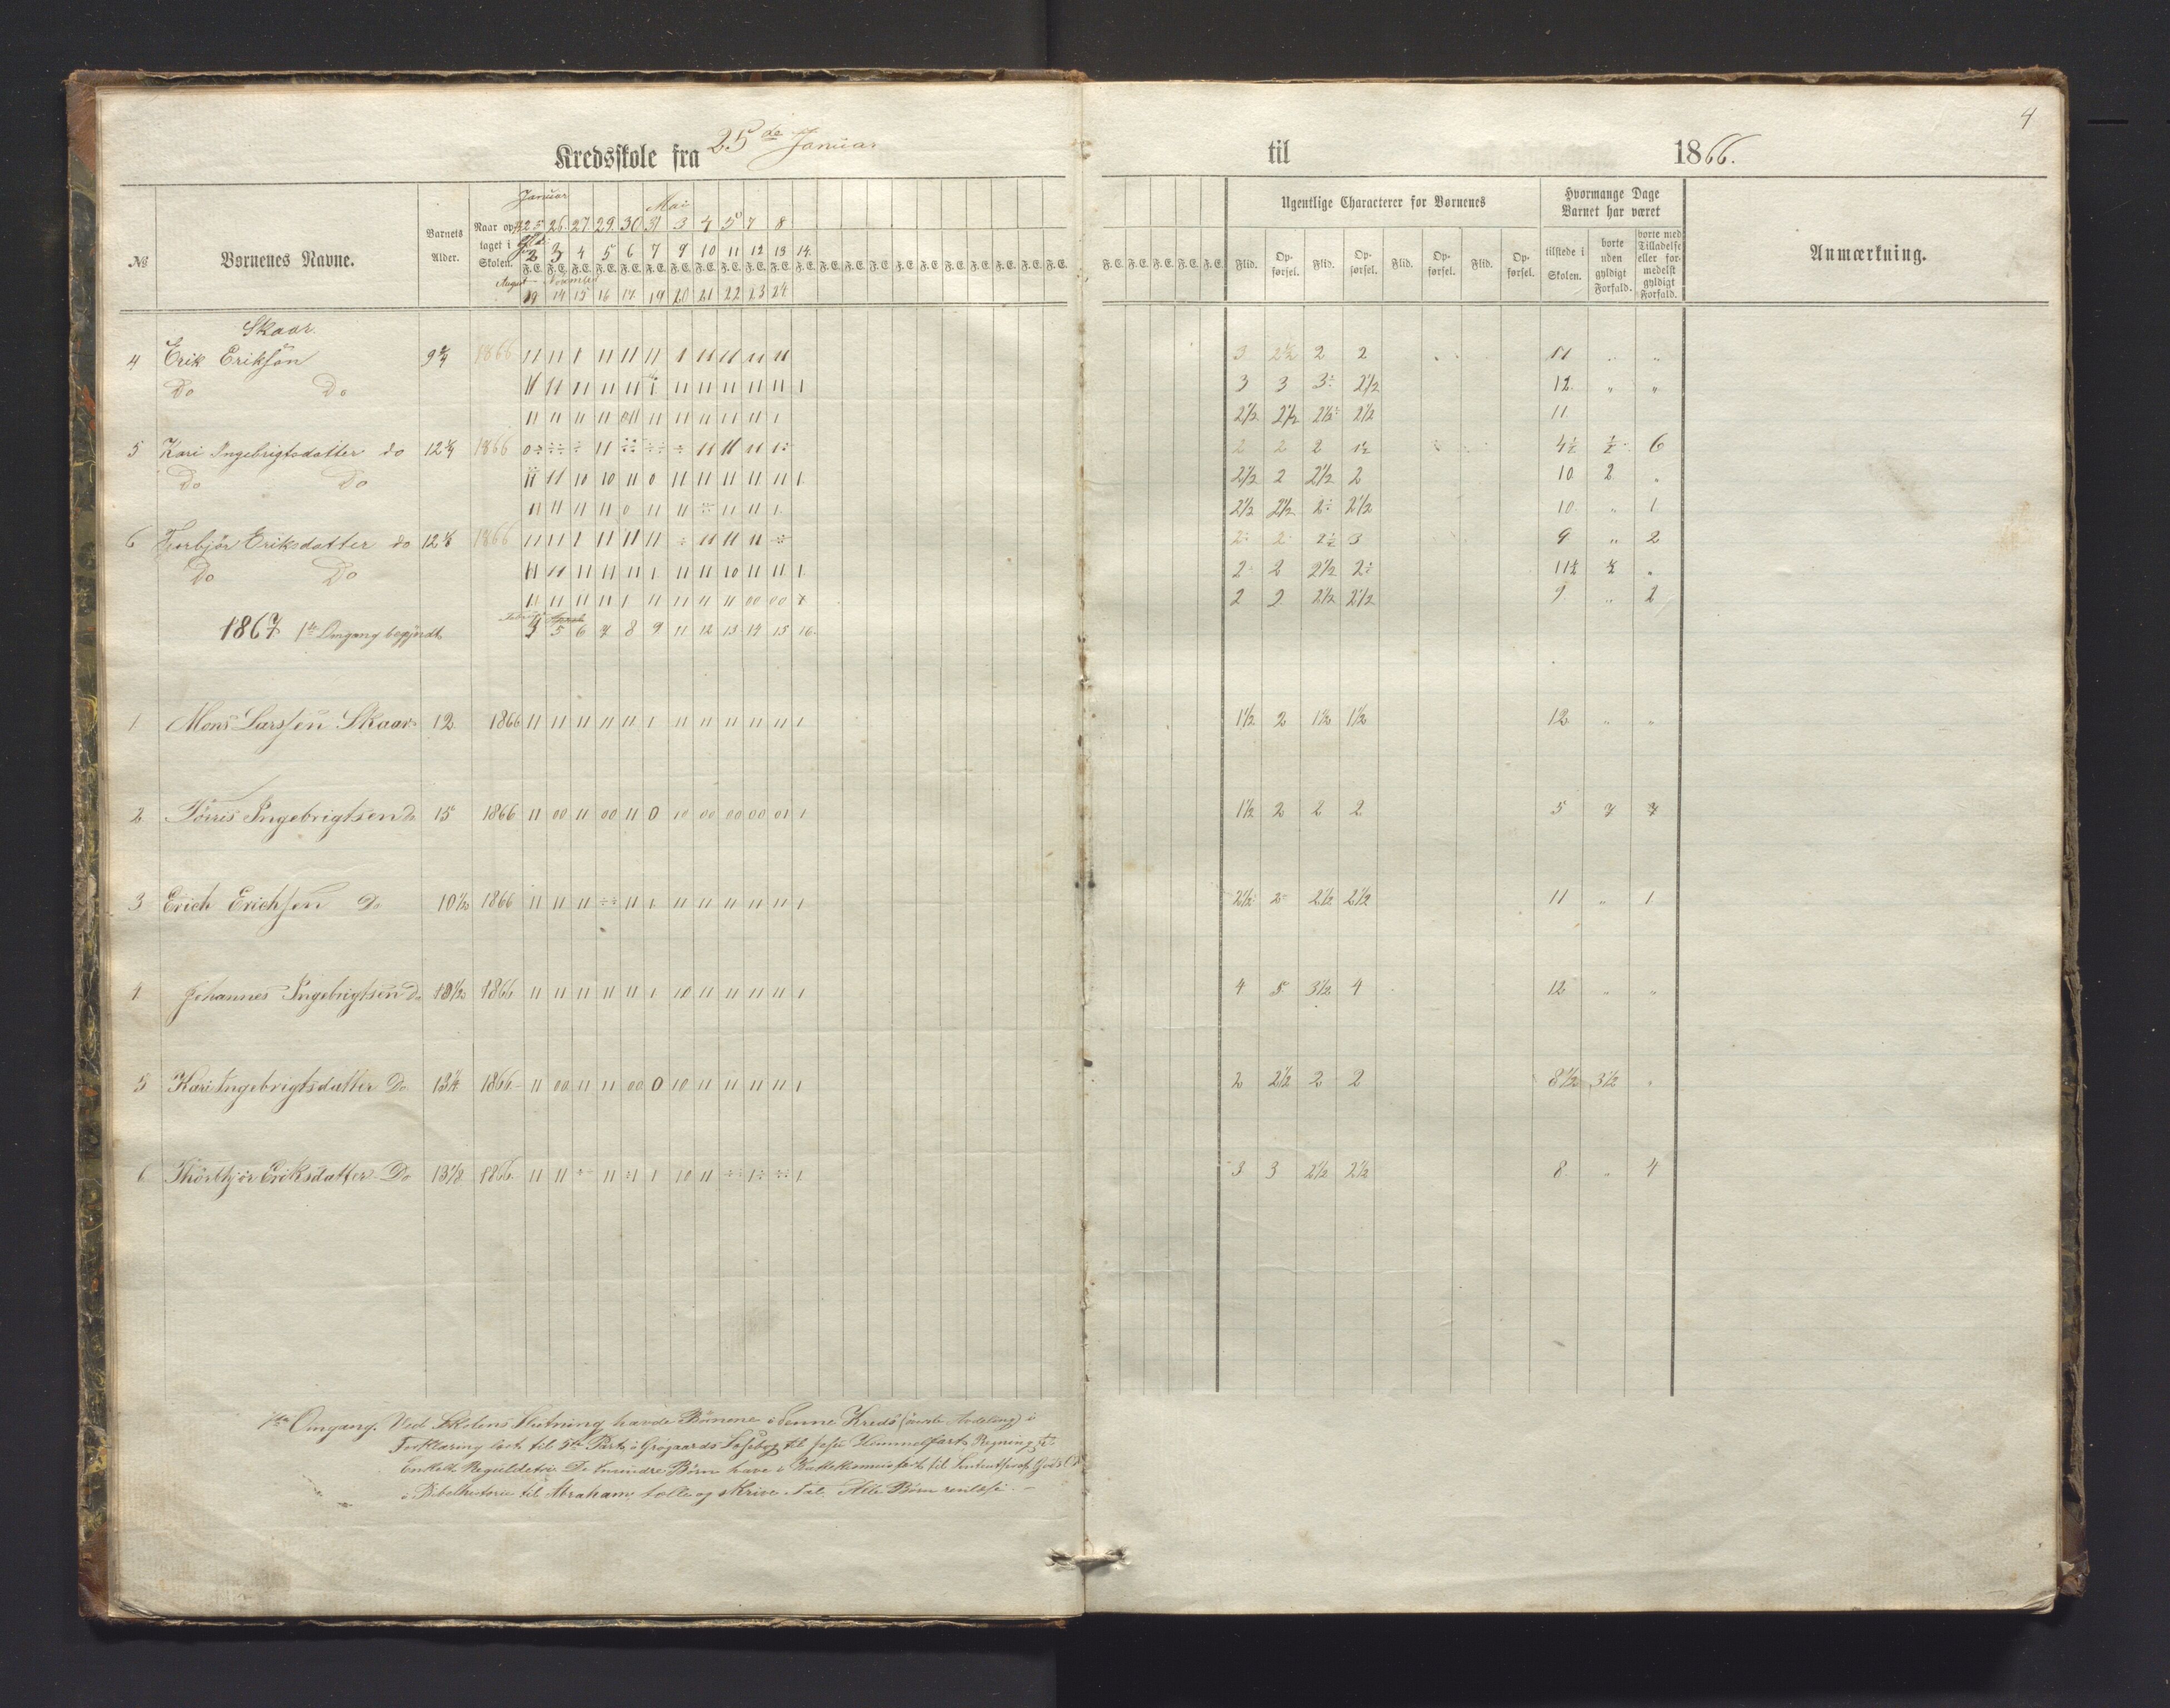 4
Kredsskole fra 25de Januar til 1866.
No Børnenes Navne. Barnets Alder. Naar optaget i Skolen.
Januar Mai
25 26 27 29 30 31 3 4 5 7 8
2 3 4 5 6 7 9 10 11 12 13 14
F.E. F.E. F.E. F.E. F.E. F.E. F.E. F.E. F.E. F.E. F.E. F.E. F.E. F.E. F.E. F.E. F.E. F.E. F.E. F.E. F.E. F.E.
August November
14 15 16 17 19 20 21 22 23 24
F.E. F.E. F.E. F.E. F.E.
Ugentlige Characterer for Børnenes
Flid. Opførsel. Flid. Opførsel. Flid. Opførsel. Flid. Opførsel.
Hvormange Dage Barnet har været
tilstede i Skolen. borte uden gyldigt Forfald. borte med Tilladelse eller formedelst gyldigt Forfald.
Anmærkning.
Skaar.
4 Erik Eriksøn 9 3/4 1866 11 11 1 11 11 11 1 11 11 11 11 3 2½ 2 2 11 " "
Do Do 11 11 11 11 11 1 11 11 11 11 11 1 3 3 3÷ 2½ 12 " "
2½ 2½ 2½÷ 2½ 11
5 Kari Ingebrigtsdatter do 1866 2 2 2 1½ 4½ ½ 6
Do Do 11 11 10 10 11 0 11 11 11 11 11 1 2½ 2 2½ 2 10 2 "
11 11 11 11 0 11 11 ÷÷ 11 11 1 2½ 2½ 2÷ 2½ 10 " 1
6 Torbjør Eriksdatter do 1866 11 11 1 11 11 11 ÷ 11 11 11 ÷÷ 2÷ 2 2½ 3 9 " 2
Do Do 11 11 11 11 11 1 11 11 10 11 11 1 2÷ 2 2½ 2÷ 11½ ½ "
11 11 11 11 1 11 11 11 11 00 00 2 2 2½ 2½ 9 " 2
1867 1ste Omgang begyndt 5 6 7 8 9 11 12 13 14 15 16.
1 Mons Larssen Skaar 12 1866 11 11 11 11 11 1 11 11 11 11 11 1 1½ 2 1½ 1½ 12 " "
2 Ingebrigtsen do 15 1866 11 00 11 00 11 0 10 00 00 00 01 1 1½ 2 2 2 5 7
3 Erich Erichsen Do 10½ 1866 11 11 11 ÷÷ 11 1 11 11 11 11 11 1 2½ 2÷ 2½ 2½ 11 " 1
4 Johannes Ingebrigtsen do 1866 11 11 11 11 11 1 10 11 11 11 11 1 4 5 3½ 4 12 " "
5 Kari Ingebrigtsdatter Do 13¼ 1866 11 00 11 11 00 0 10 11 11 11 11 1 2 2½ 2 2 8½ 3½ "
6 Thorbjør Eriksdatter Do 1866 11 11 ÷÷ 11 ÷1 1 10 11 ÷÷ 1÷ ÷÷ 1 3 3 2½ 2½ 8 " 4
1ste Omgang. Ved Skolens Slutning havde Børnene i denne Kreds (øverste Avdeling) i
Forklaring læst til 5te Part, i Grøgaards Læsebog til Jesu Himmelfart, Regning til
Enkelt Reguldetri. De mindre Børn have i Kattekismus læst til
i Bibelhistorie til Abraham, tælle og skrive Tal. Alle Børn